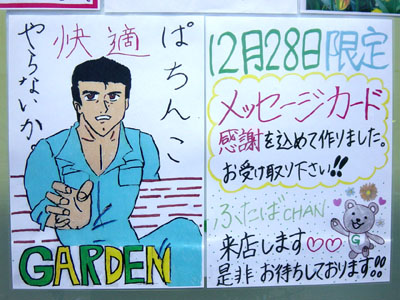 ぱちんこ
快適
やらないか。
GARDEN
12月28日限定
メッセージカード
感謝を込めて作りました。
お受け取り下さい!!
ふたばCHAN
来店します♡♡
G
是非お待ちしております!!